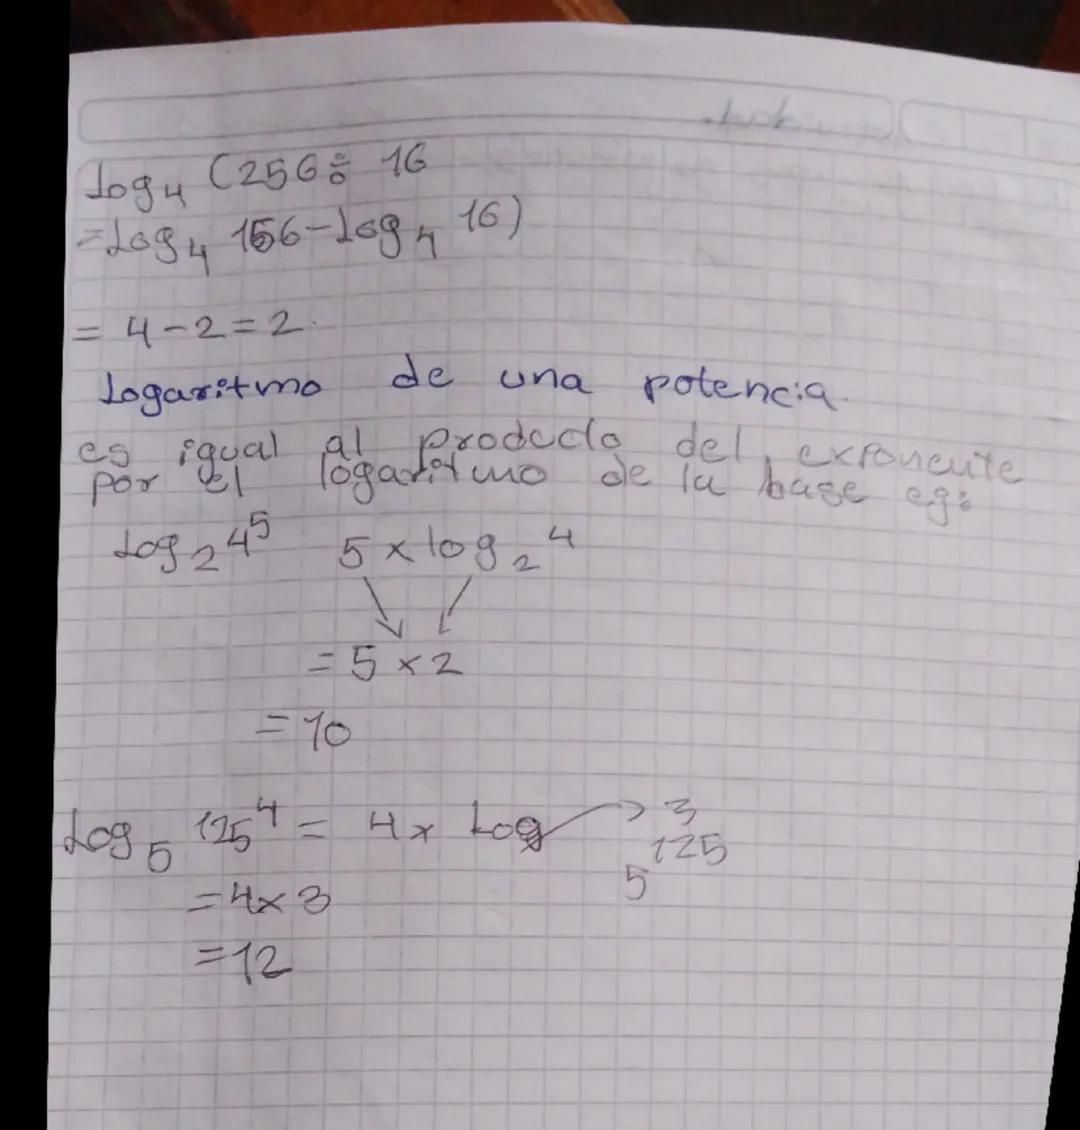 log₄ (256÷ 16
=Log₄ 156-Log₄ 16)
= 4-2=2.
Logaritmo de una potencia.
es igual al producto del exponente
por el logaritmo de la base eg:
Log₂ 4⁵ 5 x log₂ 4
= 5 x 2
= 10
Log₅ 125⁴ = 4 x Log → 3
125
5
= 4x 3
=12